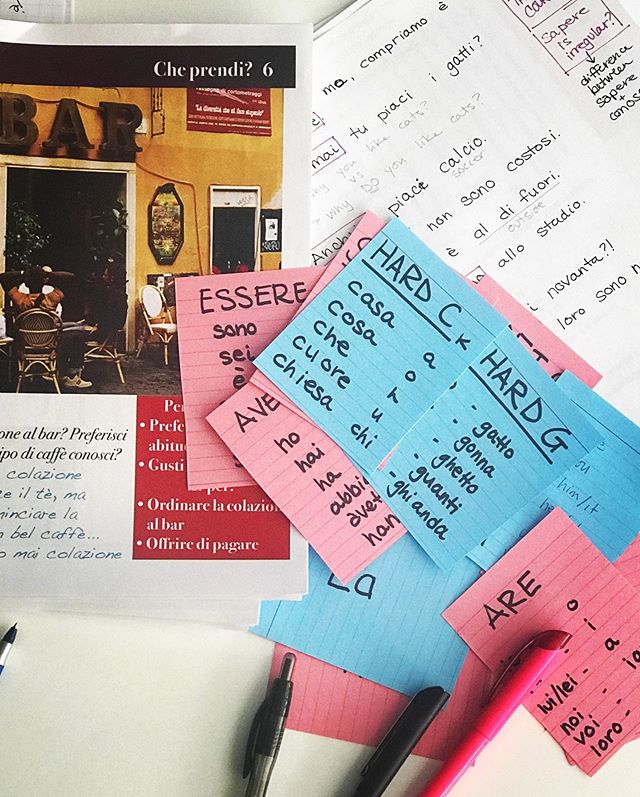 Che prendi? 6
BAR
La diversità che ci fa
one al bar? Preferisci
ipo di caffè conosci?
colazione
e il tè, ma
minciare la
n bel caffè...
o mai colazione
• Prefe
abitu
• Gusti
• Ordinare la colazio
al bar
• Offrire di pagare
ma, compriamo è
mai tu piaci i gatti?
why you like cats?
vs
why do you like cats?
piace calcio.
soccer
non sono costosi.
è al di fuori.
outside
allo stadio.
i novanta?!
loro sono n
Anch
Sapere
is
irregular?
differenca
between
sapere
+
conos
ESSERE
sono
sei
è
AVE
ho
hai
ha
abbia
avet
han
HARD C K
casa a
cosa o
che h
cuore u
chiesa chi
HARD G
- gatto
- gonna
- ghetto
- guanti
- ghianda
him/it
ARE
o
i
lui/lei - a
noi -
voi -
loro -